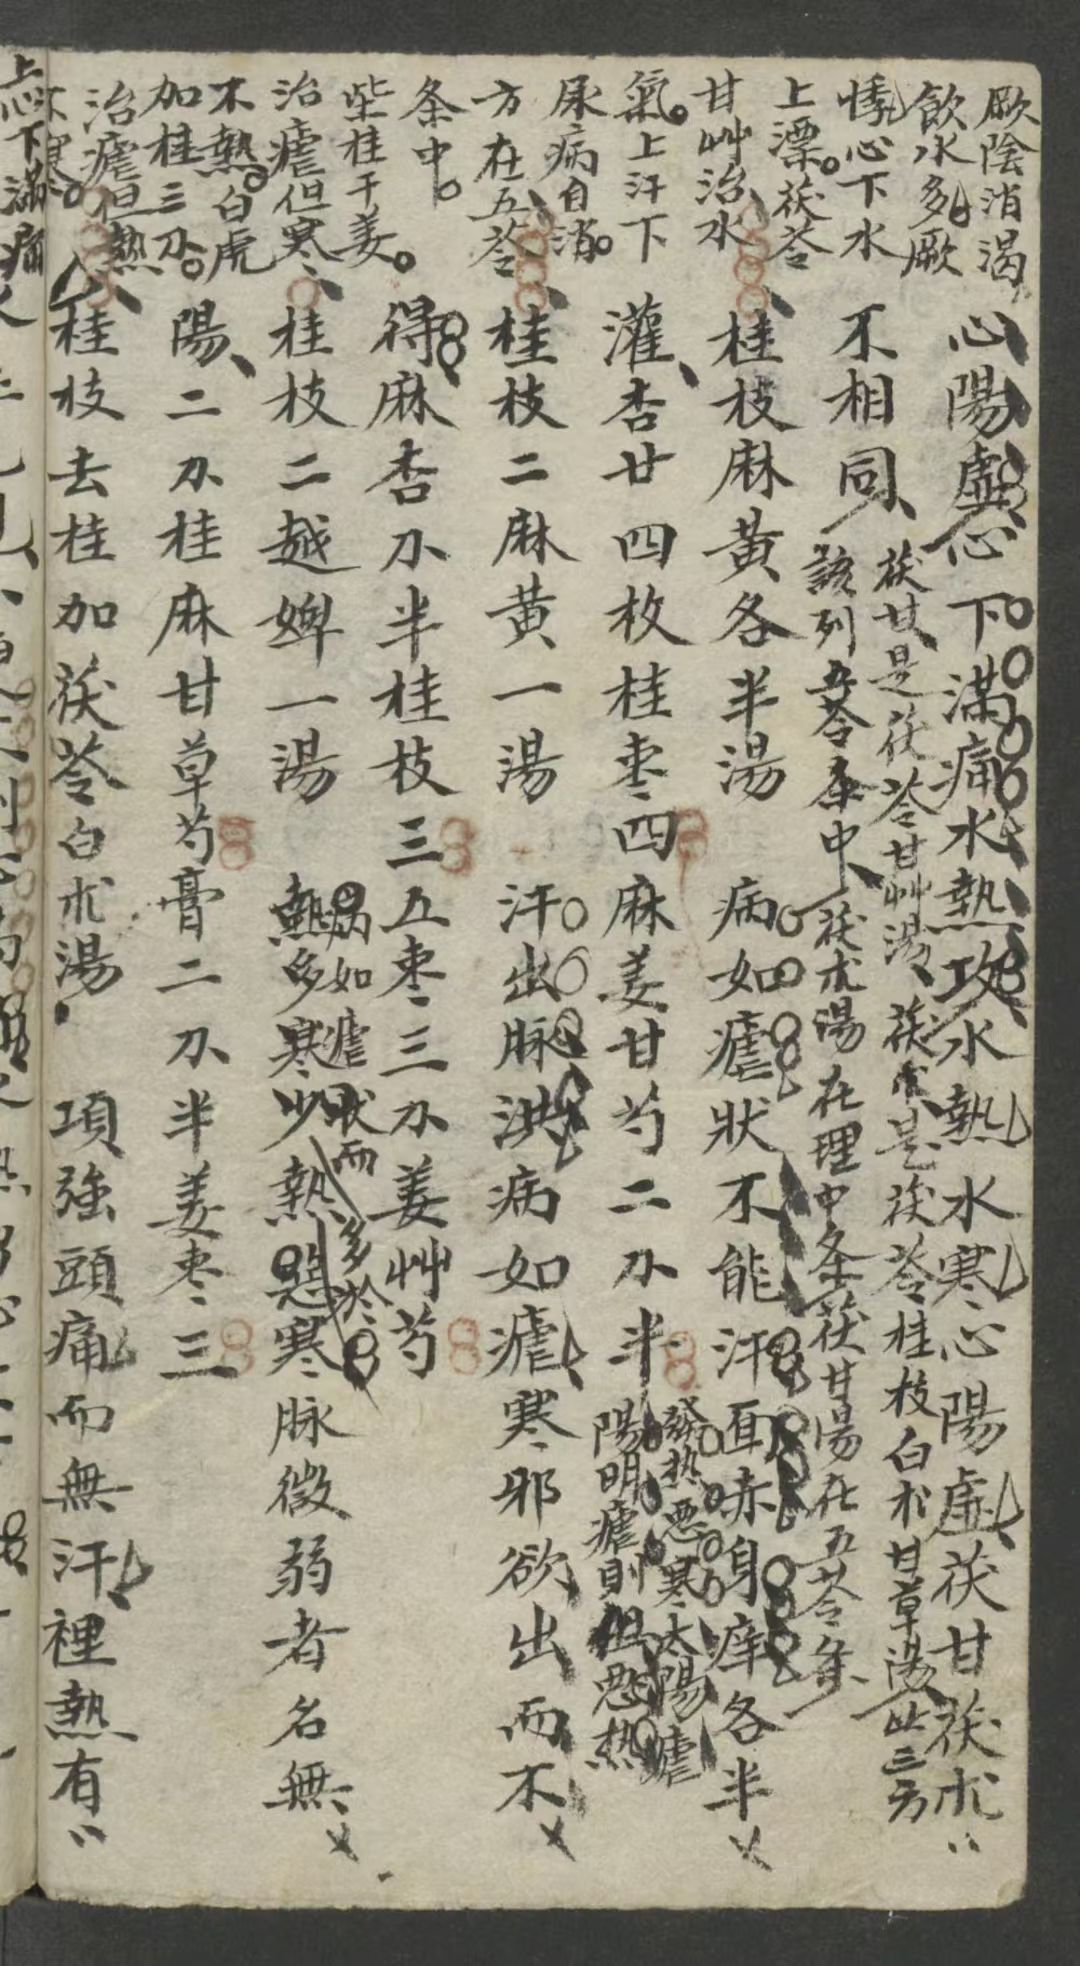 厥陰消渴
飲水多厥
悸心下水
上漂茯苓
甘艸治水
氣上汗下
尿病自消
方在五苓
条中
柴桂干姜
治瘧但寒
不熱白虎
加桂三刀
治瘧但熱
不寒
心陽虛心下滿痛水熱攻水熱水寒心陽虛茯甘茯朮
不相同
茯甘是茯苓甘艸湯茯朮是茯苓桂枝白朮甘草湯此三方
該列五苓条中茯朮湯在理中条茯甘湯在五苓条
桂枝麻黃各半湯 病如瘧狀不能汗面赤身痒各半
灌杏廿四枚桂枣四麻姜甘芍二刀半
發热惡寒太陽瘧
陽明瘧則但惡热
桂枝二麻黃一湯 汗出脈洪病如瘧寒邪欲出而不
得麻杏刀半桂枝三五枣三刀姜艸芍
桂枝二越婢一湯
病如瘧狀而多於
熱多寒少熱惡寒脈微弱者名無
陽二刀桂麻甘草芍膏二刀半姜枣三
桂枝去桂加茯苓白朮湯 項強頭痛而無汗裡熱有
上心下滿痛